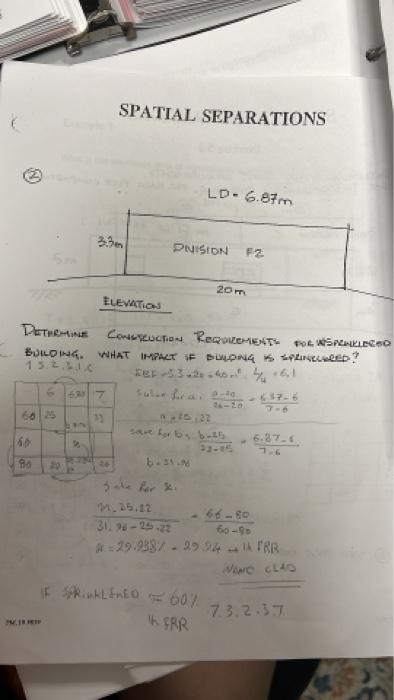 SPATIAL SEPARATIONS
②
LD = 6.87m
3.3m
DIVISION F2
20m
ELEVATION
DETERMINE CONSTRUCTION REQUIREMENTS FOR UNSPRINKLERED
BUILDING. WHAT IMPACT IF BUILDING IS SPRINKLERED?
EBF = 3.3 × 20 = 66m²
6 6.87 7
60 25
66 x
80 20 26
Solve for a: a-20/26-20 = 6.87-6/7-6
a = 25.22
solve for b: b-25 = 6.87-6/7-6
b = 31.96
Solve for x.
x-25.22/31.96-25.22 = 66-80/60-80
x = 29.938% = 29.94 → 1h FRR
NONC CLAD
IF SPRINKLERED ≈ 60%
1h FRR